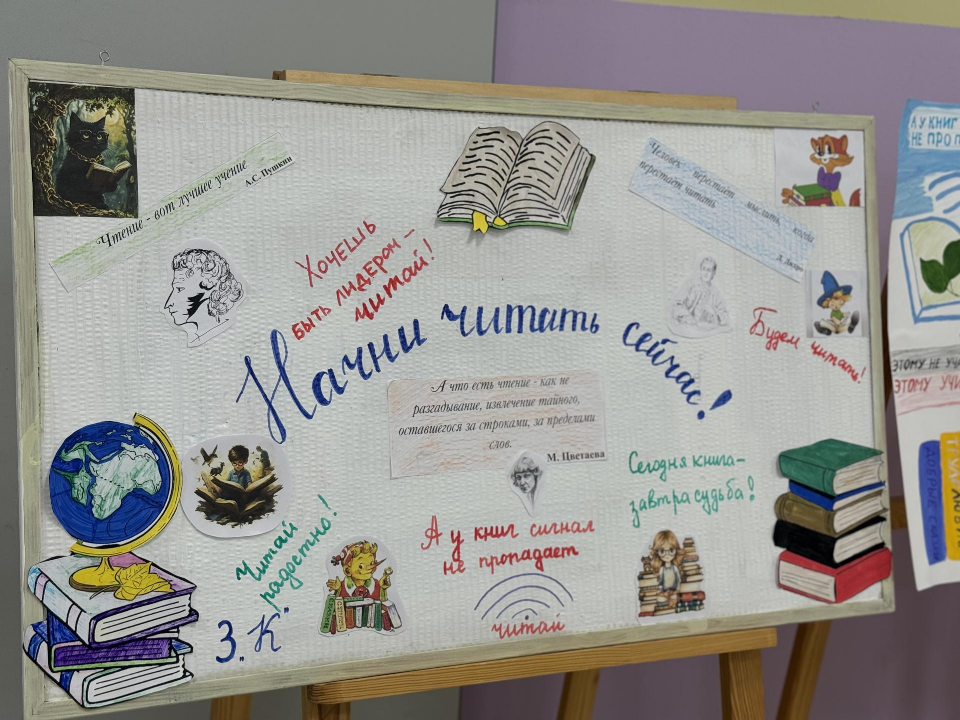 Чтение - вот лучшее учение
А.С. Пушкин
Человек перестает мыслить, когда
перестает читать
Д. Дидро
Хочешь
быть лидером -
читай!
Начни читать сейчас!
Будем читать!
А что есть чтение - как не
разгадывание, извлечение тайного,
оставшегося за строками, за пределами
слов.
М. Цветаева
Сегодня книга-
завтра судьба!
Читай
радостно!
А у книг сигнал
не пропадает
читай
З. К.
А У КНИГ
НЕ ПРО
ЭТОМУ НЕ
ЭТОМУ
ДОБРЫЕ